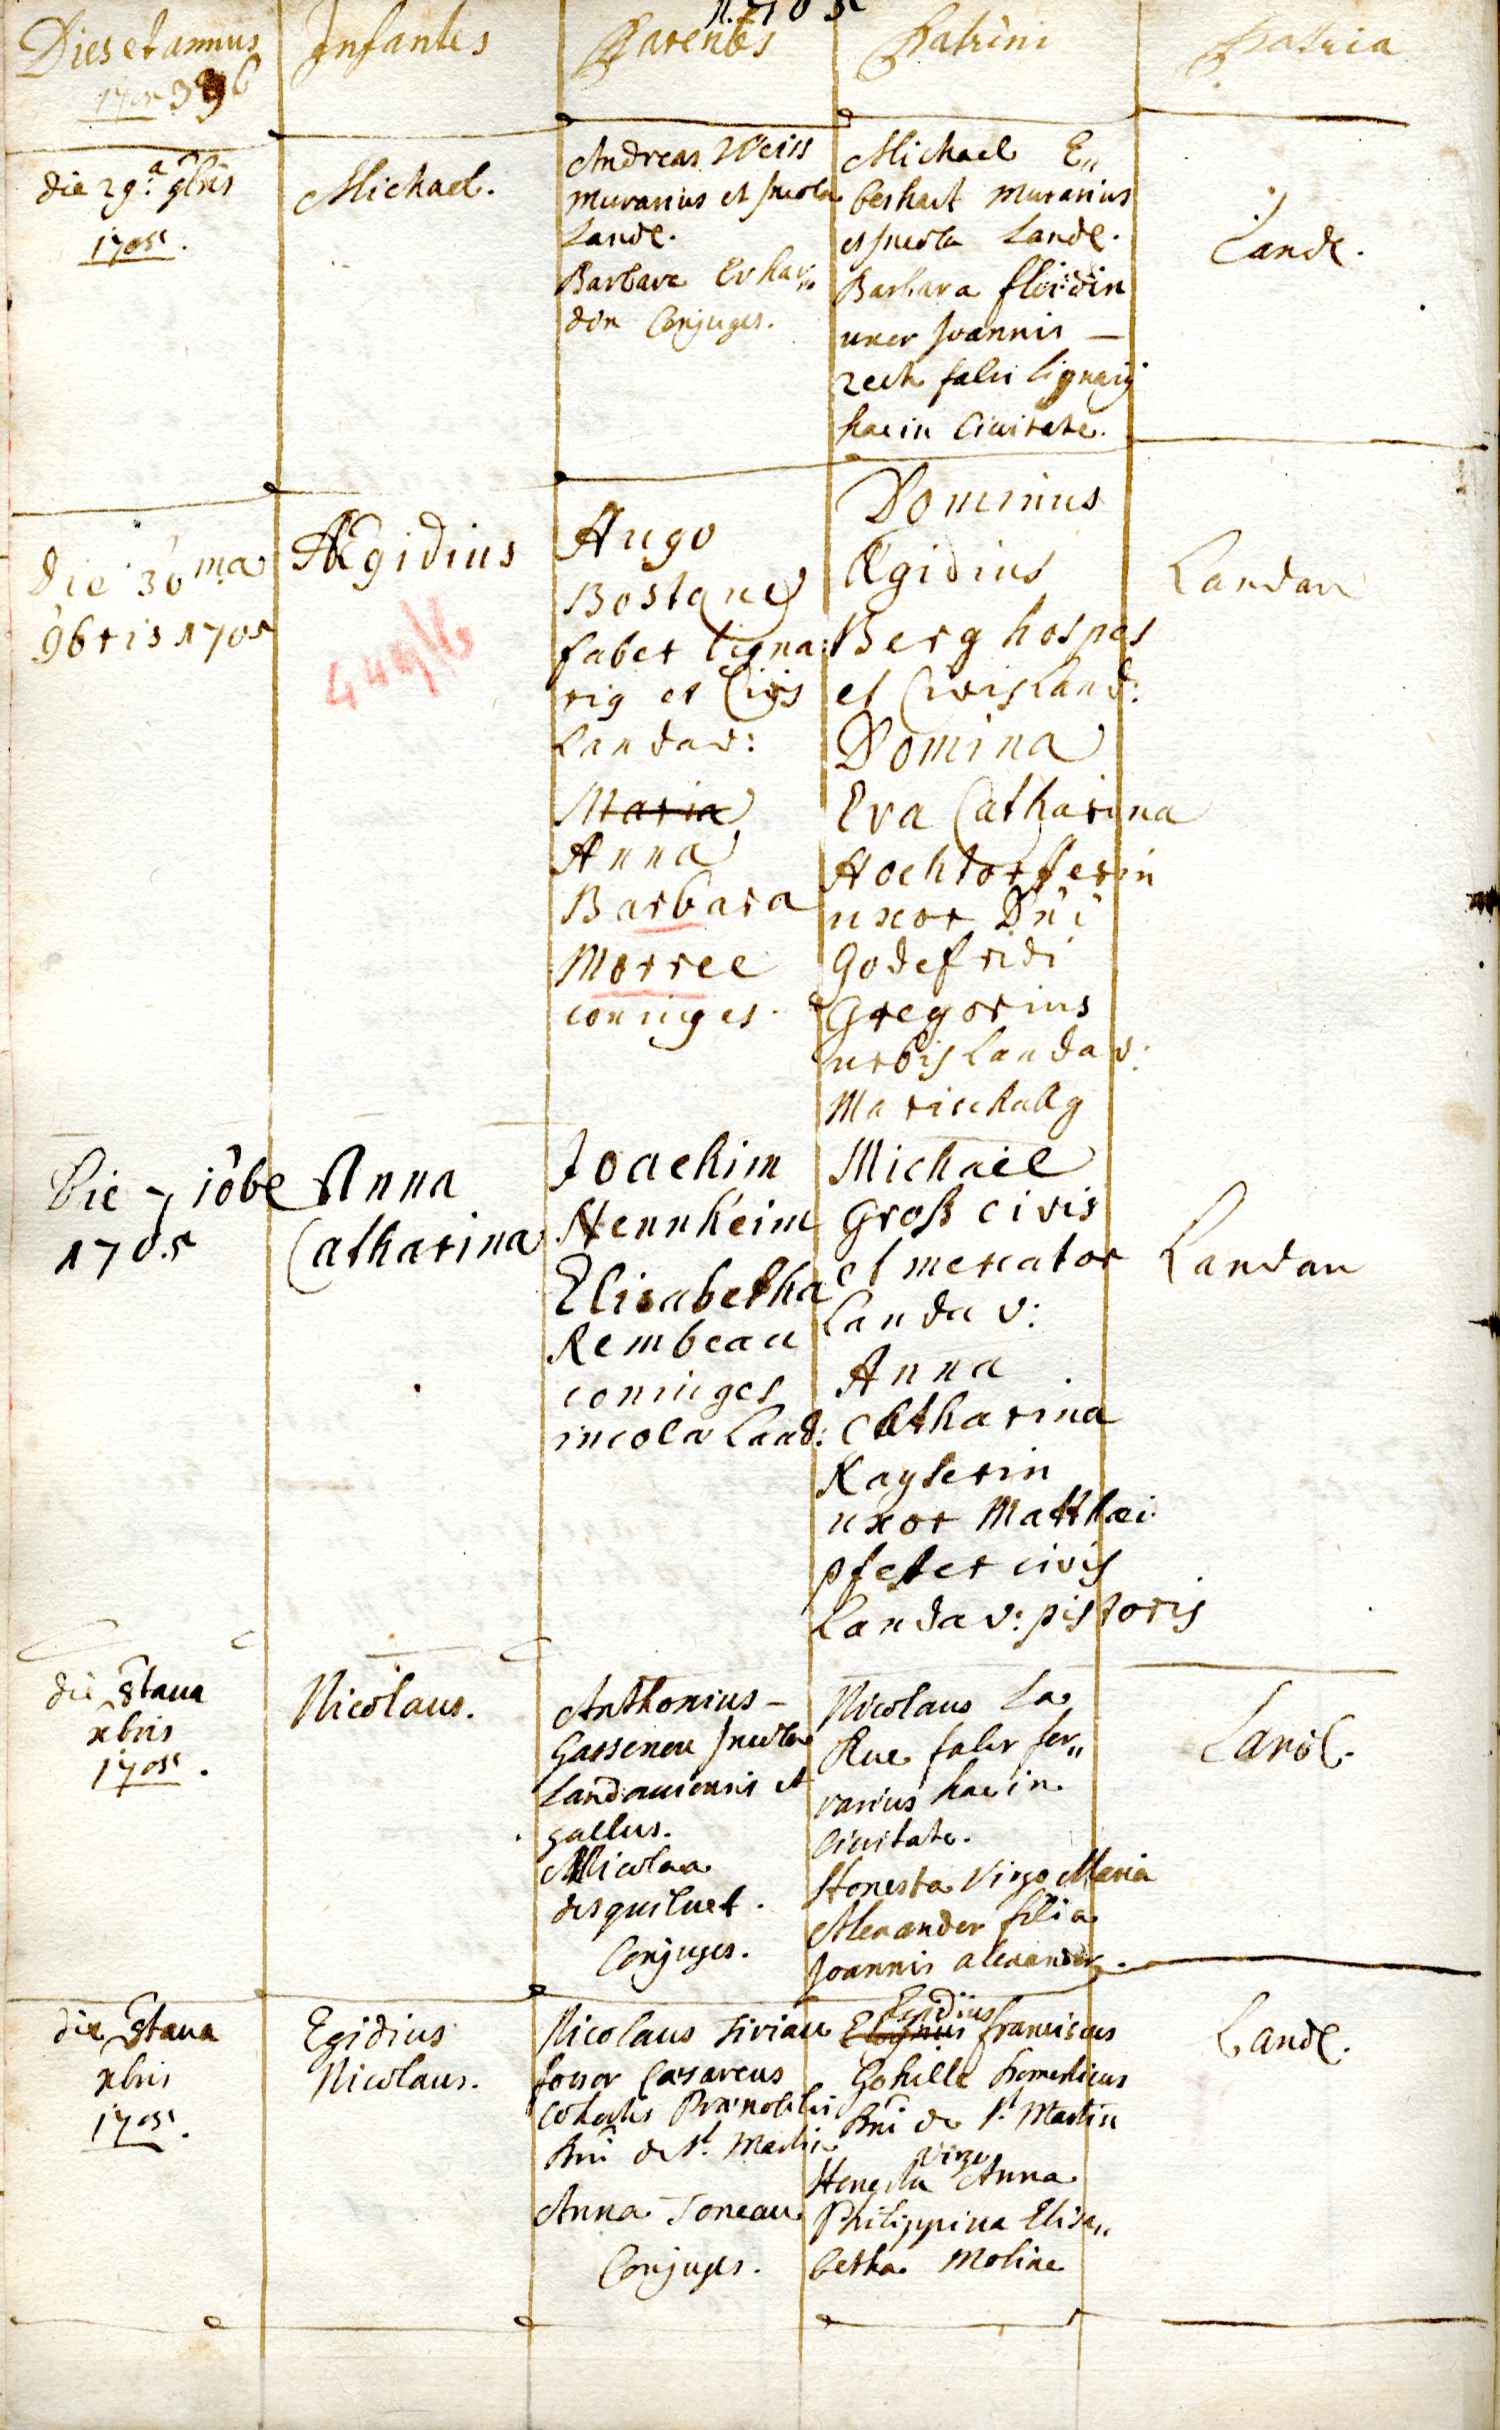 1705
Dies et annus
1705 396
Infantes
Parentes
Patrini
Patria
die 29.a 9bris
1705.
Michael.
Andreas Weiss
murarius et Incola
Landl.
Barbara Erhar„
din Conjuges.
Michael E„
berhart murarius
et Incola Landl.
Barbara
uxor Joannis —
rech fabri lignarij
hac in Civitate.
Landl.
Die 30ma
9bris 1705
Ægidius
449/6
Hugo
Bostque
faber ligna:
rig et Civis
Landav:
Maria
Anna
Barbara
Morree
coniuges.
Dominus
Ægidius
Berg hospes
et Civis Land:
Domina
Eva Catharina
Hochdorfferin
uxor Dni
Godefridi
Gregorius
urbis Landav:
Marischalkg
Landau
Die 7 10be
1705
Anna
Catharina
Joachim
Hennheim
Elisabetha
Rembeau
coniuges
incola Land:
Michael
Groß civis
et mercator
Landav:
Anna
Catharina
Kayserin
uxor Matthæi
pfester civis
Landav: pistoris
Landau
die 8taua
xbris
1705.
Nicolaus.
Anthonius —
Gasseneu Incola
Landauiensis et
gallus.
Nicolaa
desquiluet.
Conjuges.
Nicolaus La
Rue faber fer„
rarius hac in
Ciuitate.
Honesta Virgo Maria
Alexander filia
Joannis alexander.
Landl.
die 8taua
xbris
1705.
Egidius
Nicolaus.
Nicolaus Siriau
fosor Cæsareus
Cohortis Prænobilis
Dni de St. Martin
Anna Toneau
Conjuges.
Egidius
franciscus
Gohille Domesticus
Dni de St. Martin
Virgo
Honesta Anna
Philippina Elisa„
betha Moline
Landl.